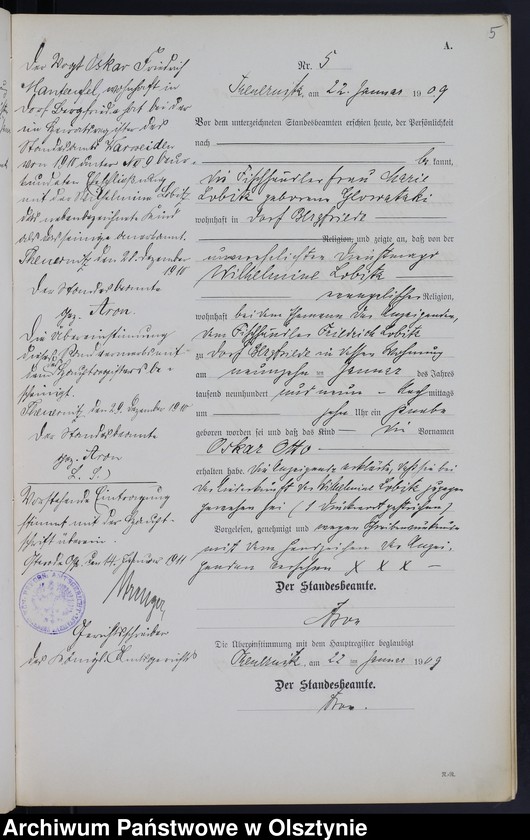 5
A.
Nr. 5
am 22. Januar 1909
Vor dem unterzeichneten Standesbeamten erschien heute, der Persönlichkeit
nach
be kannt,
die Fischhändlerfrau Marie
Lobitz geborene
wohnhaft in Dorf Bergfriede
Religion, und zeigte an, daß von der
unverehelichten Dienstmagd
Wilhelmine Lobitz
evangelischer Religion,
wohnhaft bei dem Ehemann der Anzeigenden,
dem Fischhändler Friedrich Lobitz
zu Dorf Bergfriede in dessen Wohnung
am neunzehnten Januar des Jahres
tausend neunhundert und neun Nachmittags
um zehn Uhr ein Knabe
geboren worden sei und daß das Kind die Vornamen
Oskar Otto
erhalten habe. Die Anzeigende erklärte, daß sie bei
der Niederkunft der Wilhelmine Lobitz zugegen
gewesen sei (1 Druckwort gestrichen)
Vorgelesen, genehmigt und wegen Schreibensunkunde
mit dem Handzeichen der Anzei-
genden versehen X X X
Der Standesbeamte.
Aron
Die Übereinstimmung mit dem Hauptregister beglaubigt
am 22 ten Januar 1909
Der Standesbeamte.
Aron.
Der Vogt Oskar Friedrich
Manteufel, wohnhaft in
Dorf Bergfriede hat bei der
Standesamts
von 1910 unter
mit der Wilhelmine Lobitz
das nebenbezeichnete Kind
als das seinige anerkannt.
den 20. Dezember
1910
Der Standesbeamte
gez. Aron.
Die Übereinstimmung
dieses Randvermerks mit
dem Hauptregister be-
scheinigt.
den 20. Dezember 1910
Der Standesbeamte
gez. Aron
L. S.
Vorstehende Eintragung
stimmt mit der Haupt-
schrift überein.
Osterode Opr. den 14. Januar 1911
Gerichtsschreiber
des Königl. Amtsgerichts
Archiwum Państwowe w Olsztynie